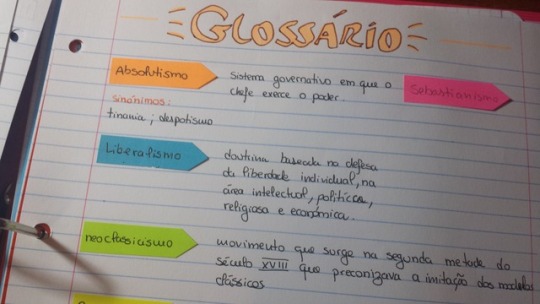 GLOSSÁRIO
Absolutismo
Sistema governativo em que o
chefe exerce o poder.
Sebastianismo
sinónimos:
tirania; despotismo
Liberalismo
doutrina baseada na defesa
da liberdade individual, na
área intelectual, política,
religiosa e económica.
neoclassicismo
movimento que surge na segunda metade do
século XVIII que preconizava a imitação dos modelos
clássicos